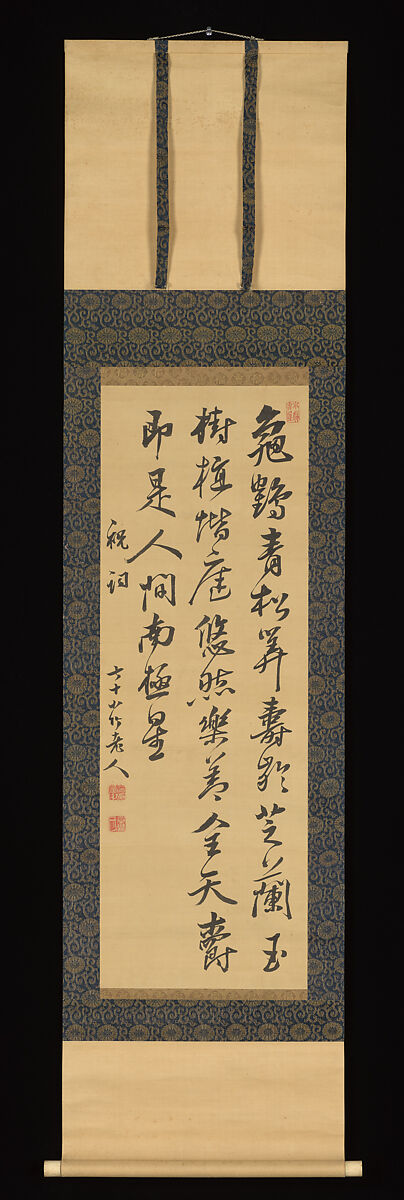 龜鶴青松筭壽齡芝蘭玉
樹植階庭悠然樂善全天爵
即是人間南極星
祝詞
六十 老人